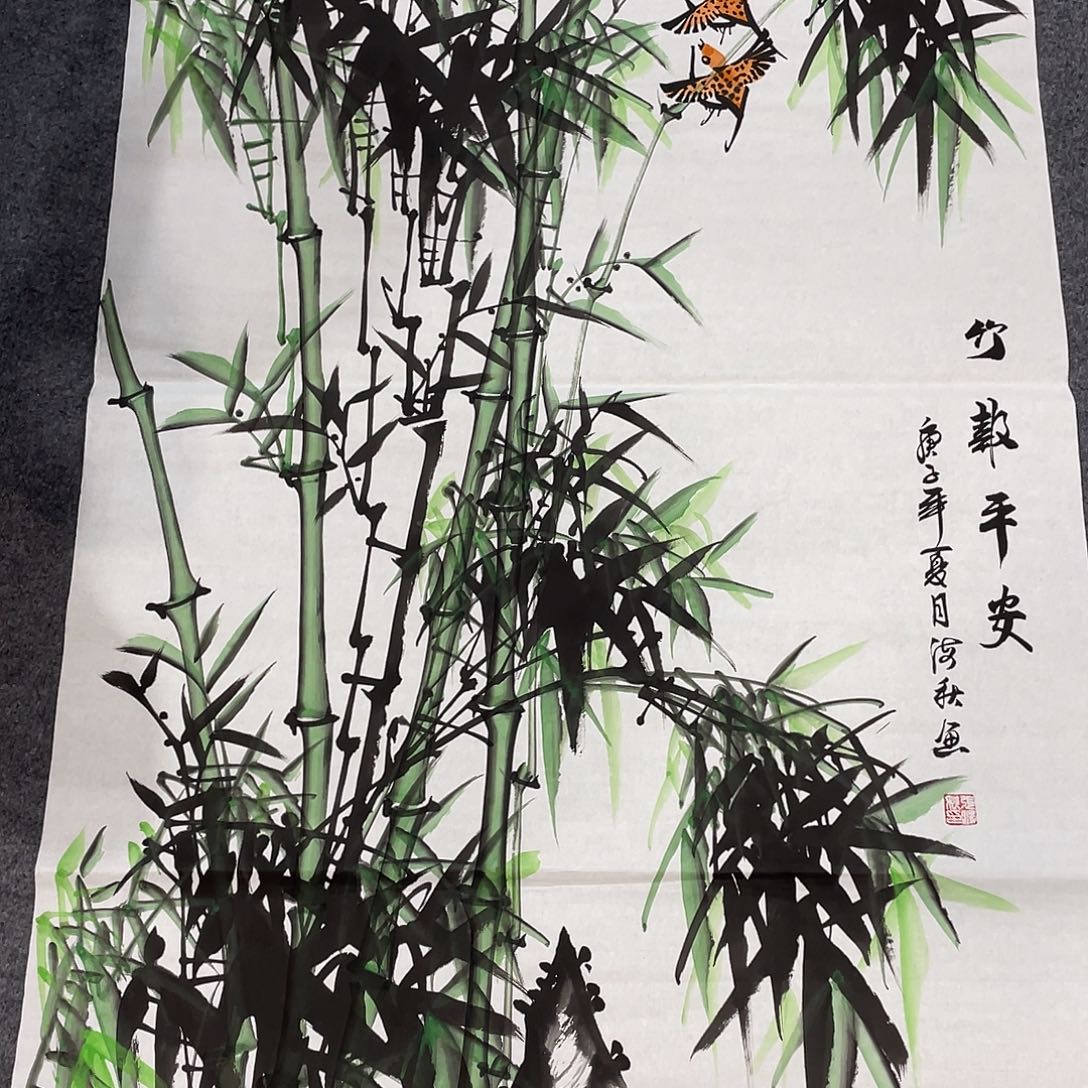 竹報平安
庚子年夏月海秋画